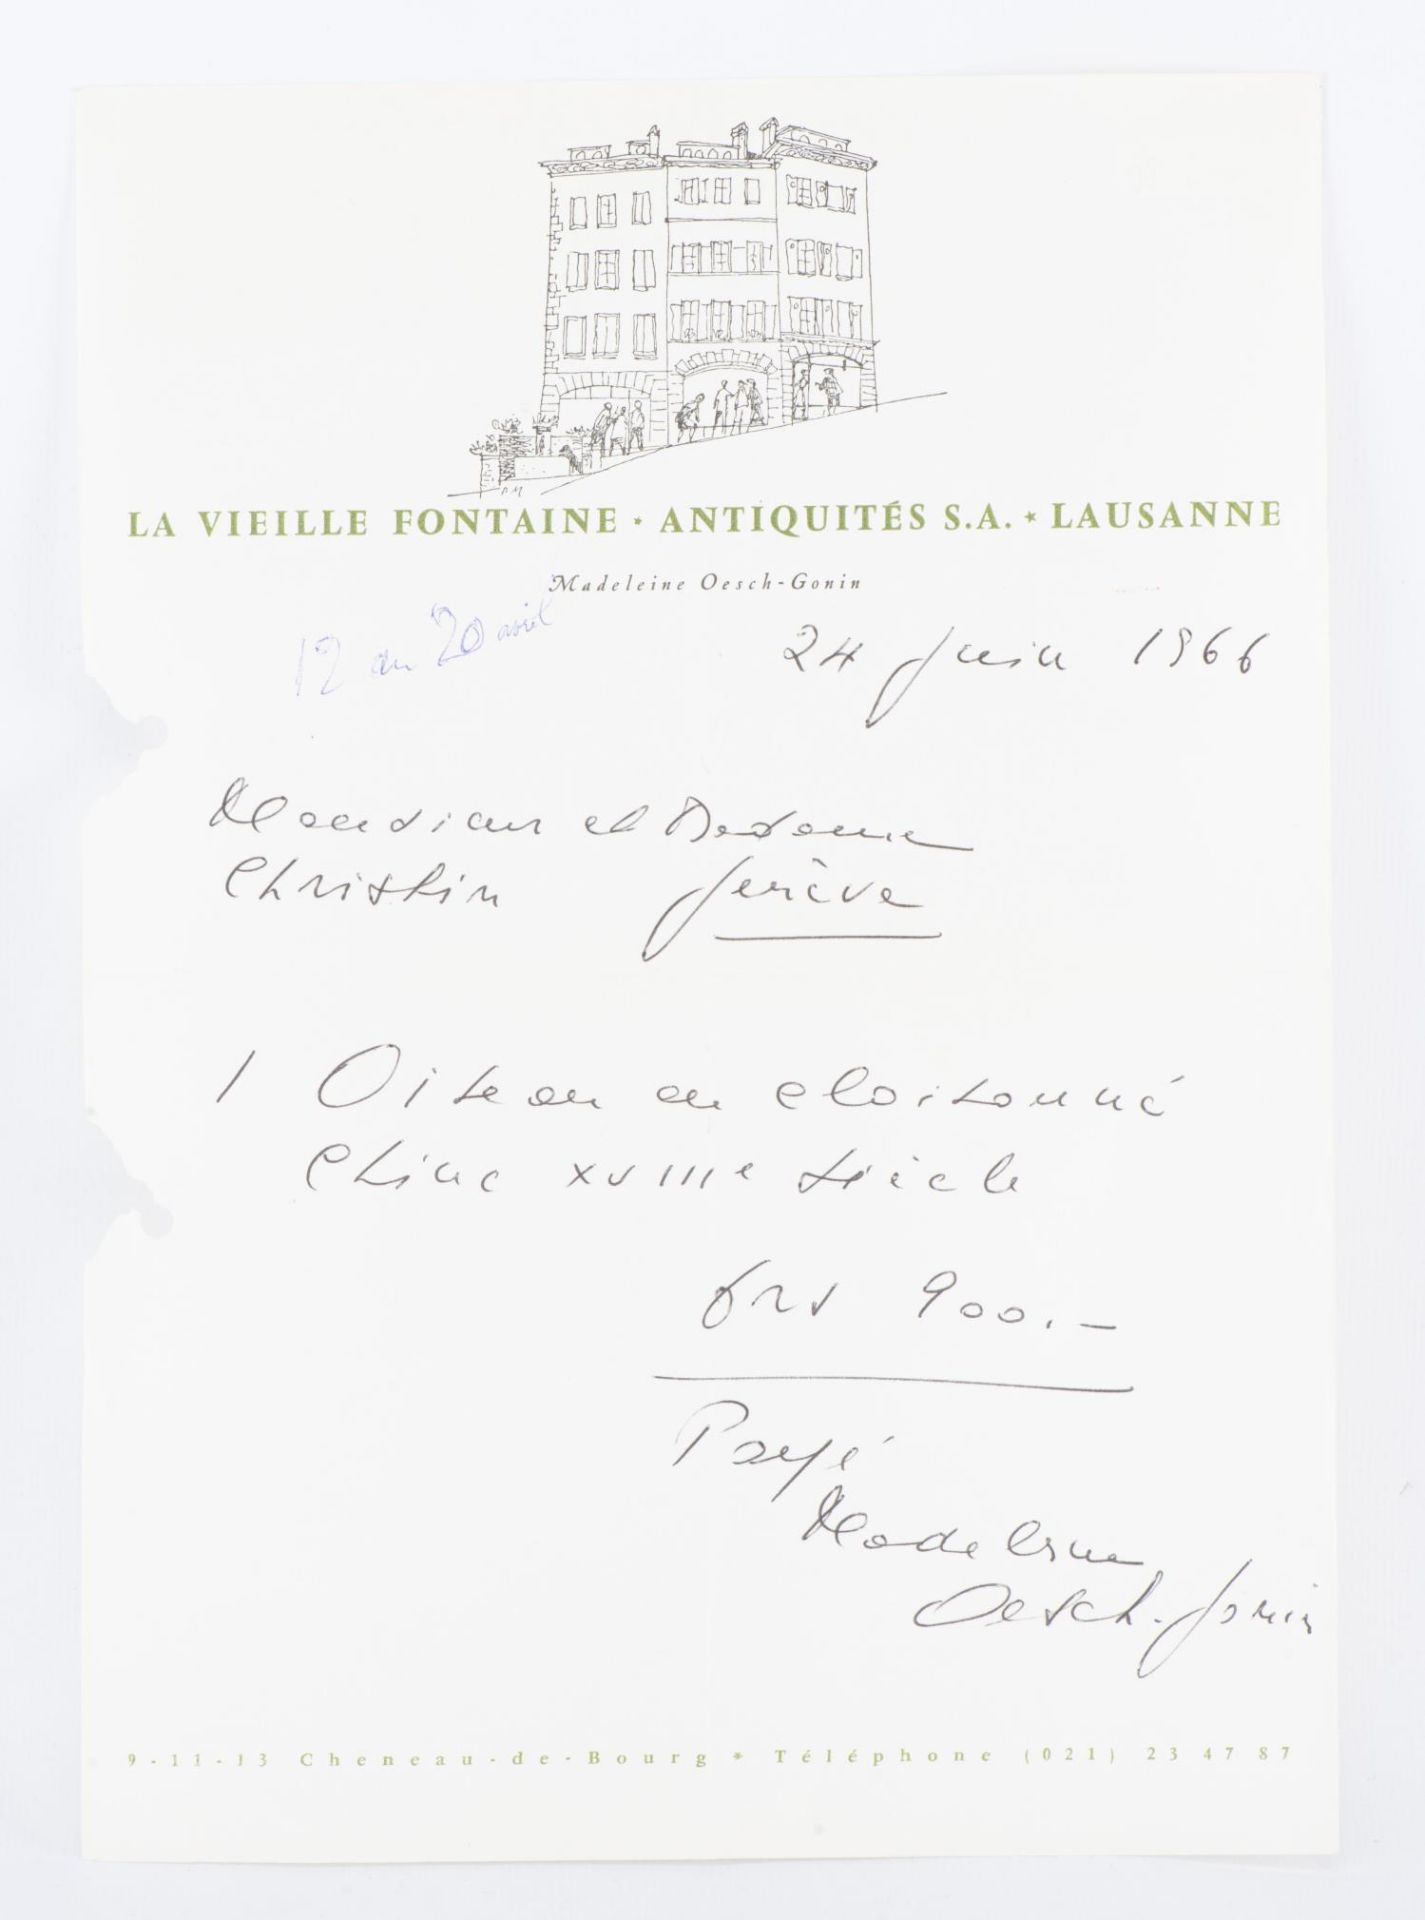 LA VIEILLE FONTAINE * ANTIQUITÉS S.A. * LAUSANNE
Madeleine Oesch-Gonin
12 au 20 avril
24 juin 1966
Monsieur et Madame
Christin Genève
1 Oiseau en cloisonné
Chine XVIIIe siècle
frs 900.-
Payé
Madeleine
Oesch-Gonin
9-11-13 Cheneau-de-Bourg * Téléphone (021) 23 47 87